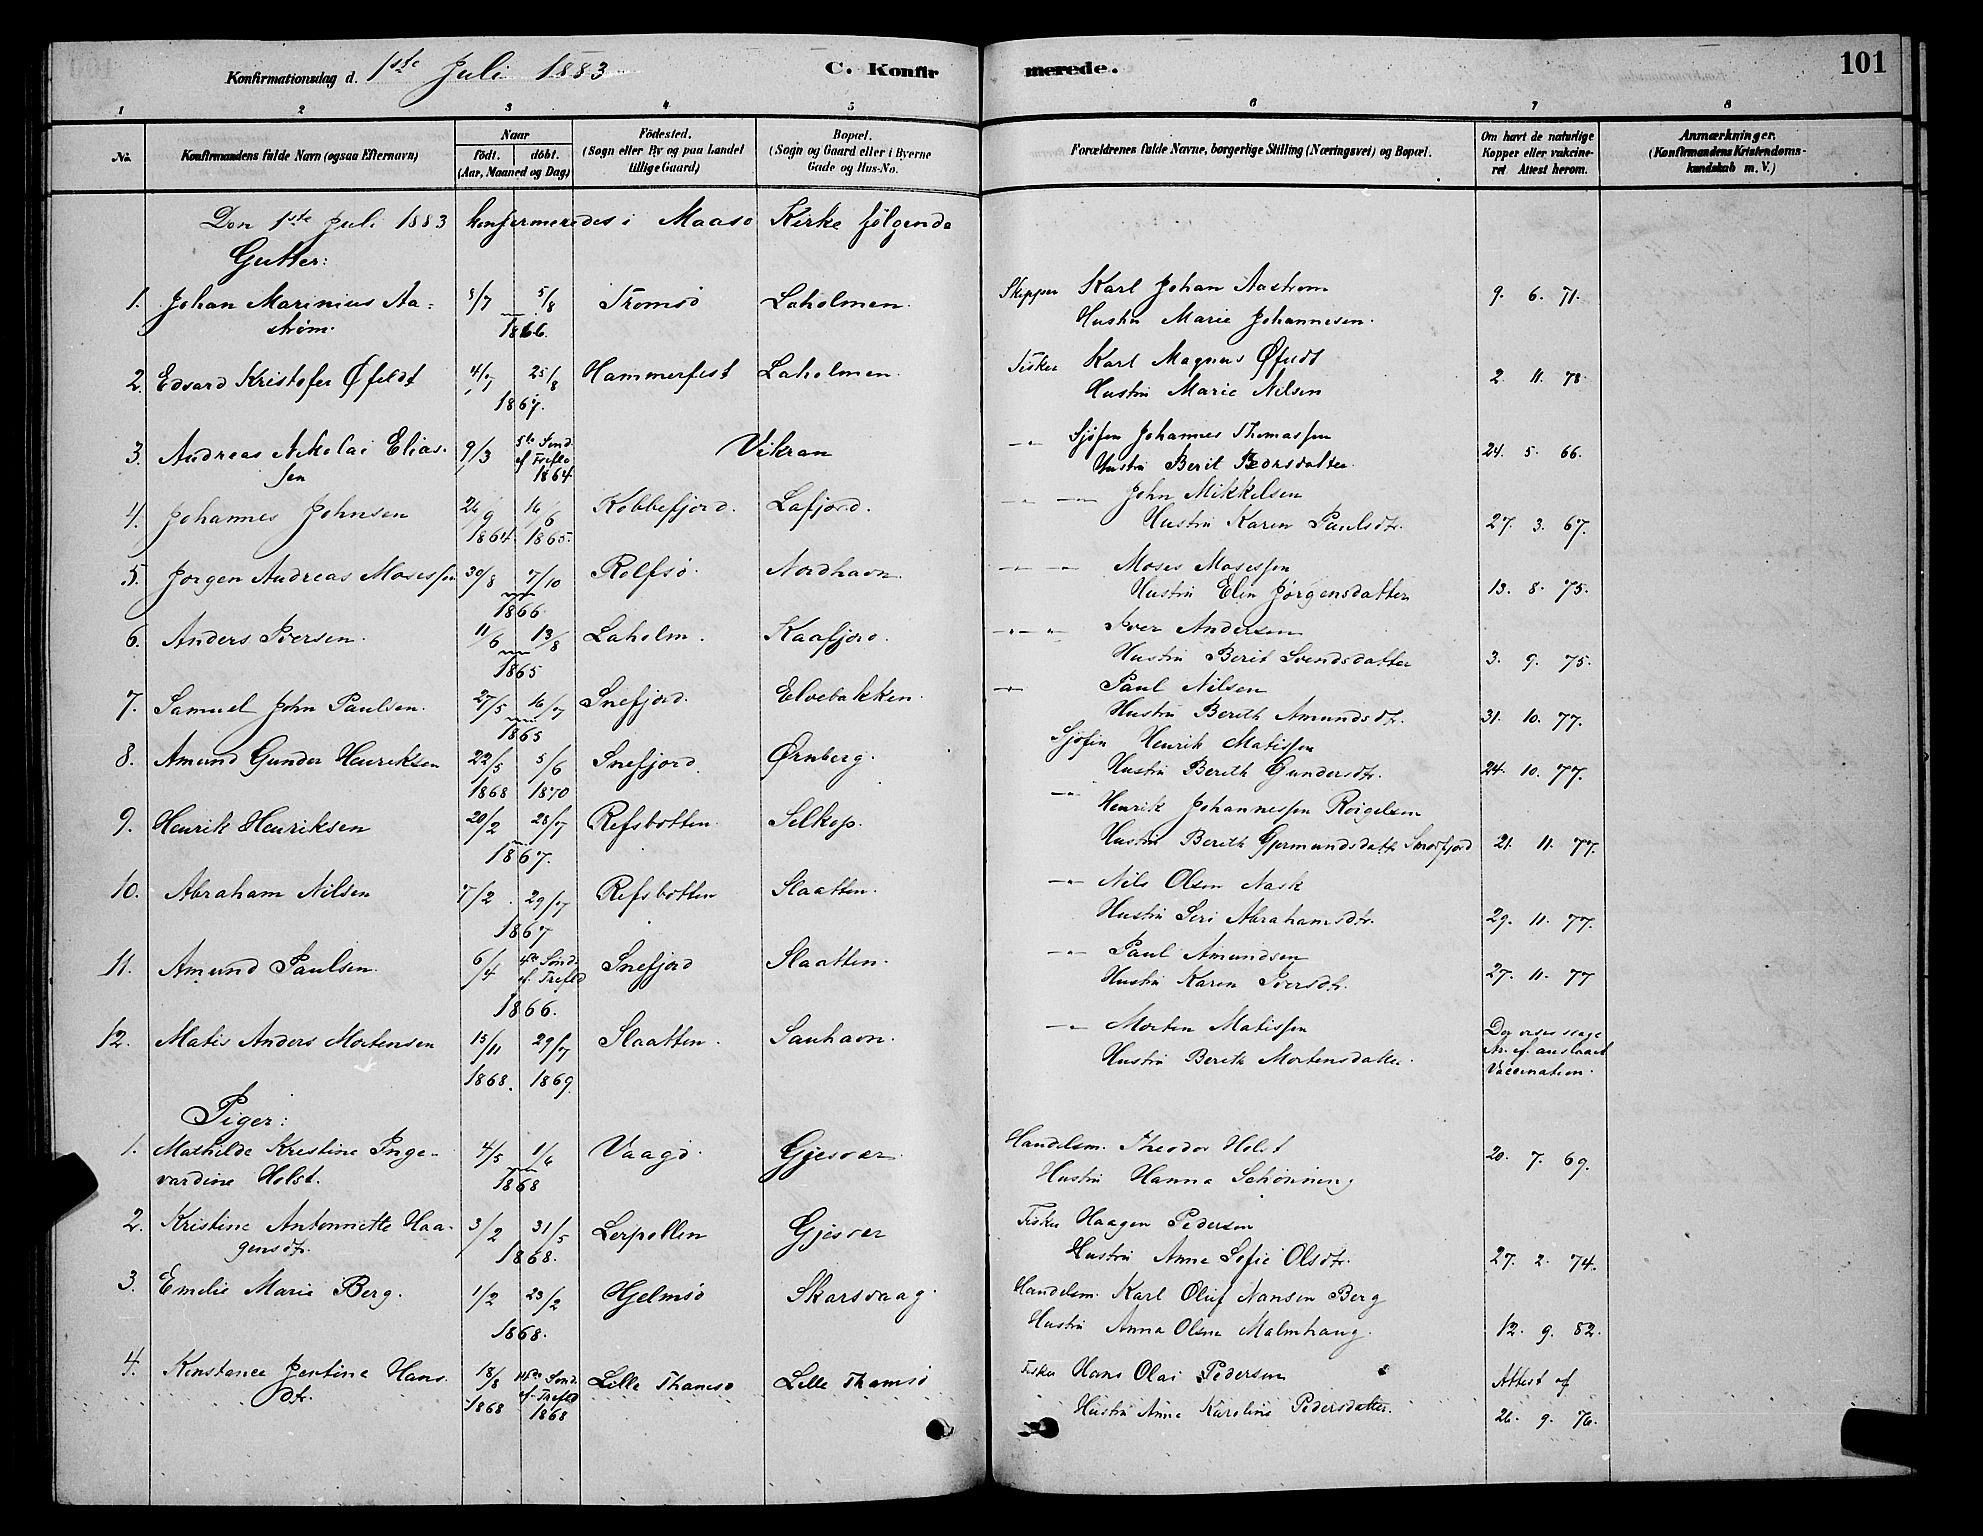 Konfirmationsdag d. 1ste Juli 1883
C. Konfir
merede.
101
1 2 3 4 5 6 7 8
No.
Konfirmandens fulde Navn (ogsaa Efternavn)
Naar
født. døbt.
(Aar, Maaned og Dag)
Fødested.
(Sogn eller By og paa Landet
tillige Gaard)
Bopæl.
(Sogn og Gaard eller i Byerne
Gade og Hus-No.
Forældrenes fulde Navne, borgerlige Stilling (Næringsvei) og Bopæl.
Om havt de naturlige
Kopper eller vakcine-
ret Attest herom.
Anmærkninger.
(Konfirmandens Kristendoms-
kundskab m. V.)
Den 1ste Juli 1883 konfermeredes i Maasø Kirke følgende
Gutter:
1. Johan Marinius Aa- 5/7 5/8 Tromsø Laholmen. Skipper Karl Johan Aastrøm 9. 6. 71.
strøm. 1866. Hustru Marie Johannesen.
2. Edvard Kristofer Øfeldt 4/7 25/8 Hammerfest Laholmen. Fisker Karl Magnus Øfeldt 2. 11. 78.
1867. Hustru Marie Nilsen
3. Andreas Nikolai Elias- 9/3 5te Sønd. Vikran -"- Sjøfin Johannes Thomassen 24. 5. 66.
sen ef. Trefld 1864 Hustru Berit Pedersdatter.
4. Johannes Johnsen 26/9 16/6 Kobbefjord. Lafjord. -"- -"- John Mikkelsen
1864. 1865. Hustru Karen Paulsdtr. 27. 3. 67.
5. Jørgen Andreas Mosessen 30/8 7/10 Rolfsø. Nordhavn -"- -"- Moses Mosessen
1866. Hustru Elen Jørgensdatter 13. 8. 75.
6. Anders Iversen. 11/6 13/8 Laholm. Kaafjord. -"- -"- Iver Andersen
1865 Hustru Berit Svendsdatter 3. 9. 75.
7. Samuel John Paulsen. 27/5 16/7 Snefjord. Elvebakken. -"- Paul Nilsen
1865 Hustru Berith Amundsdtr. 31. 10. 77.
8. Amund Gunder Henriksen 22/5 5/6 Snefjord Ørnberg. Sjøfin Henrik Matissen
1868 1870 Hustru Berith Gundersdtr. 24. 10. 77.
9. Henrik Henriksen 20/2 28/7 Refsbotten. Selkop. -"- Henrik Johannessen
1867. Hustru Berith Gjermundsdatter 21. 11. 77.
10. Abraham Nilsen 7/2 29/7 Refsbotten Slaatten. -"- Nils Olsen Nask
1867 Hustru Siri Abrahamsdtr. 29. 11. 77.
11. Amund Paulsen. 6/4 4de Sønd. Snefjord Slaatten. -"- Paul Amundsen
ef. Trefld 1866. Hustru Karen Iversdtr. 27. 11. 77
12. Matis Anders Mortensen 15/11 29/7 Slaatten. Sauhavn. -"- Morten Matissen
1868. 1869. Hustru Berith Mortensdatter. ef. anslaaet Vaccination.
Piger:
1. Mathilde Kristine Inge- 4/5 1/6 Vaagø. Gjesvær. Handelsm. Theodor Holst
vardine Holst. 1868 Hustru Hanna Schønning 20. 7. 69.
2. Kristine Antonnette Haa- 3/2 31/5 Lerpollen Gjesvær Fisker Haagen Pedersen
gensdtr. 1868. Hustru Anne Sofie Olsdtr. 27. 2. 74.
3. Emelie Marie Berg. 1/2 23/2 Hjelmsø Skarsvaag. Handelsm. Karl Oluf Nansen Berg
1868. Hustru Anna Olsne Malmhaug. 12. 9. 82.
4. Konstance Jentine Hans 18/8 Sønd. Lille Thamsø Lille Thamsø Fisker Hans Olai Pedersen Attest af
dtr. 1868 ef. Trefld 1868 Hustru Anne Karoline Pedersdatter. 26. 9. 76.